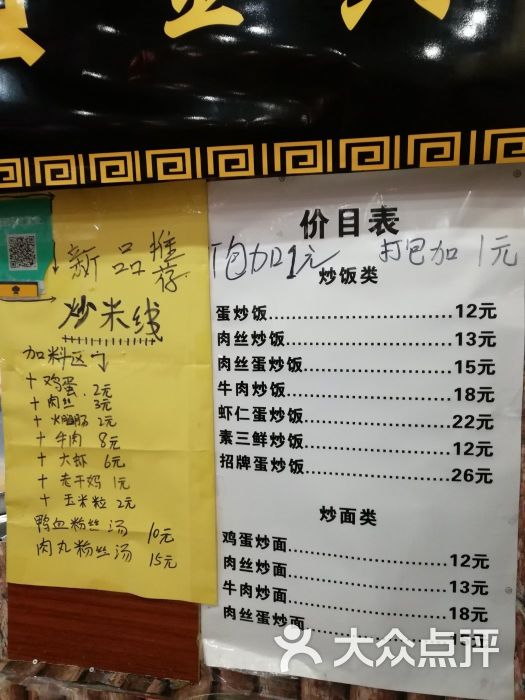 新品推荐
炒米线
加料区
+鸡蛋 2元
+肉丝 3元
+火腿肠 2元
+牛肉 8元
+大虾 6元
+老干妈 1元
+玉米粒 2元
鸭血粉丝汤 10元
肉丸粉丝汤 15元
价目表
打包加1元
打包加1元
炒饭类
蛋炒饭 12元
肉丝炒饭 13元
肉丝蛋炒饭 15元
牛肉炒饭 18元
虾仁蛋炒饭 22元
素三鲜炒饭 12元
招牌蛋炒饭 26元
炒面类
鸡蛋炒面 12元
肉丝炒面 13元
牛肉炒面 18元
肉丝蛋炒面 15元
大众点评